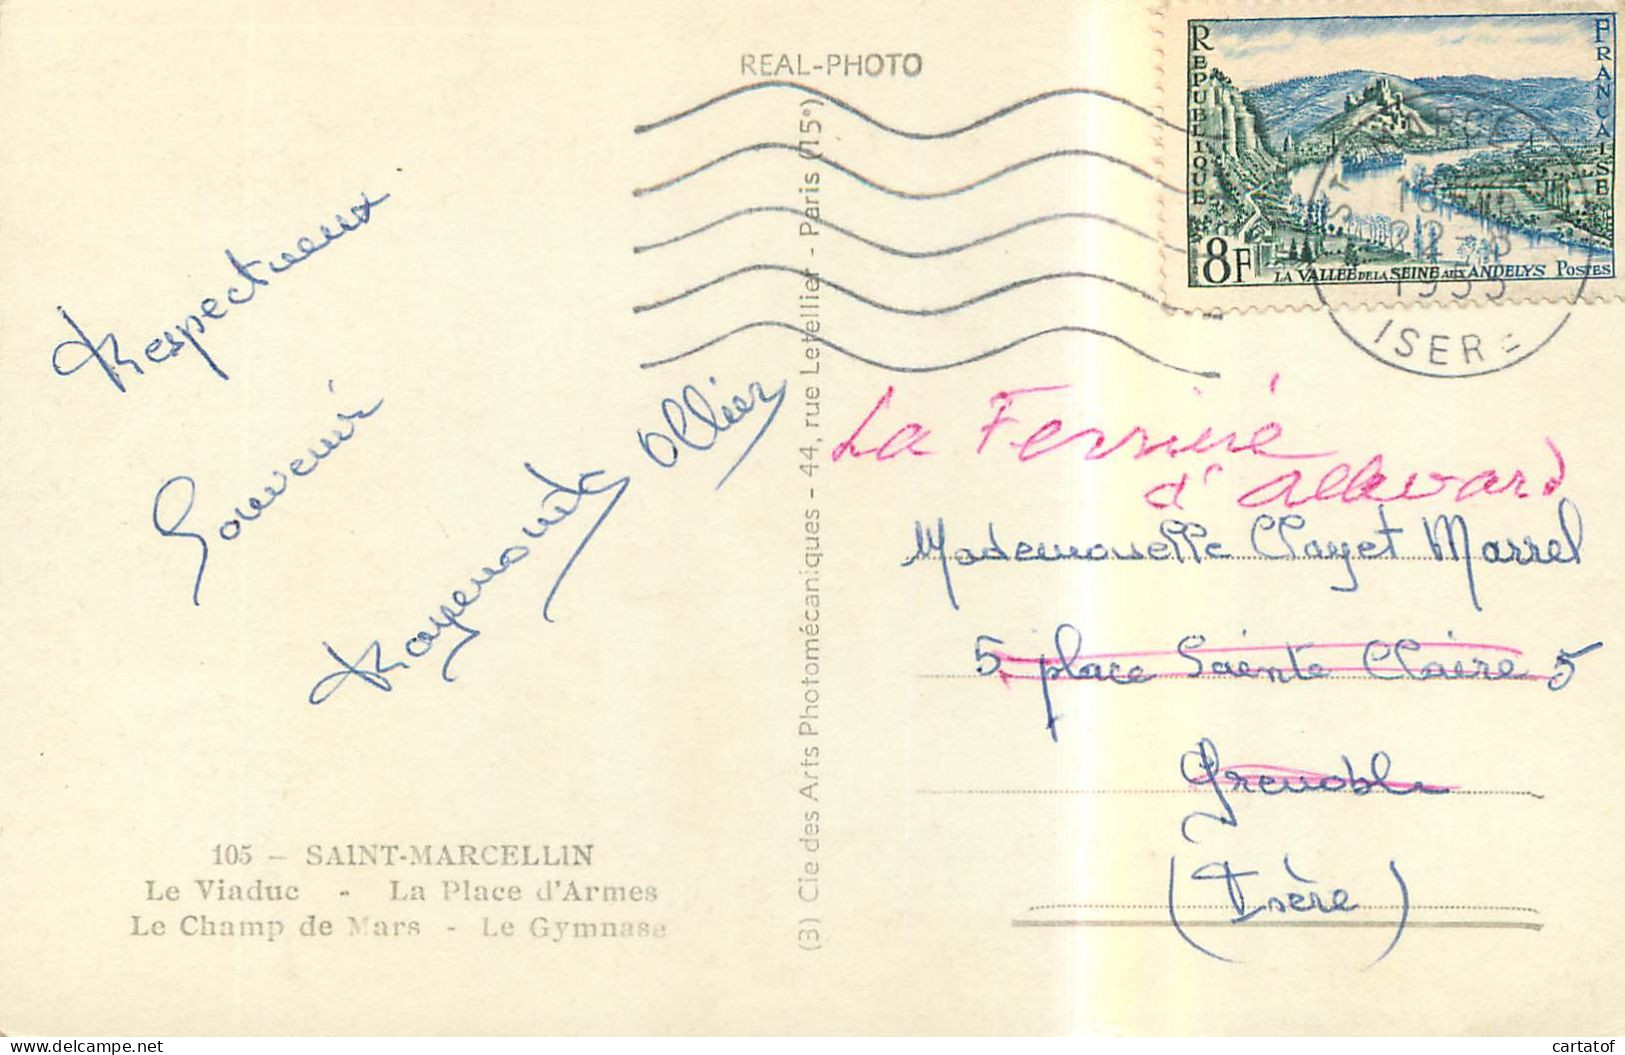 REAL-PHOTO
RÉPUBLIQUE FRANÇAISE
8F
LA VALLÉE DE LA SEINE AUX ANDELYS POSTES
ISERE
Respectueux
Souvenir
Raymonde Ollier
La Ferrière
d'Allevard
Mademoiselle Clayet Marrel
5 place Sainte Claire 5
Grenoble
(Isère)
105 - SAINT-MARCELLIN
Le Viaduc - La Place d'Armes
Le Champ de Mars - Le Gymnase
(3) Cie des Arts Photomécaniques - 44, rue Letellier - Paris (15e)
cartatof